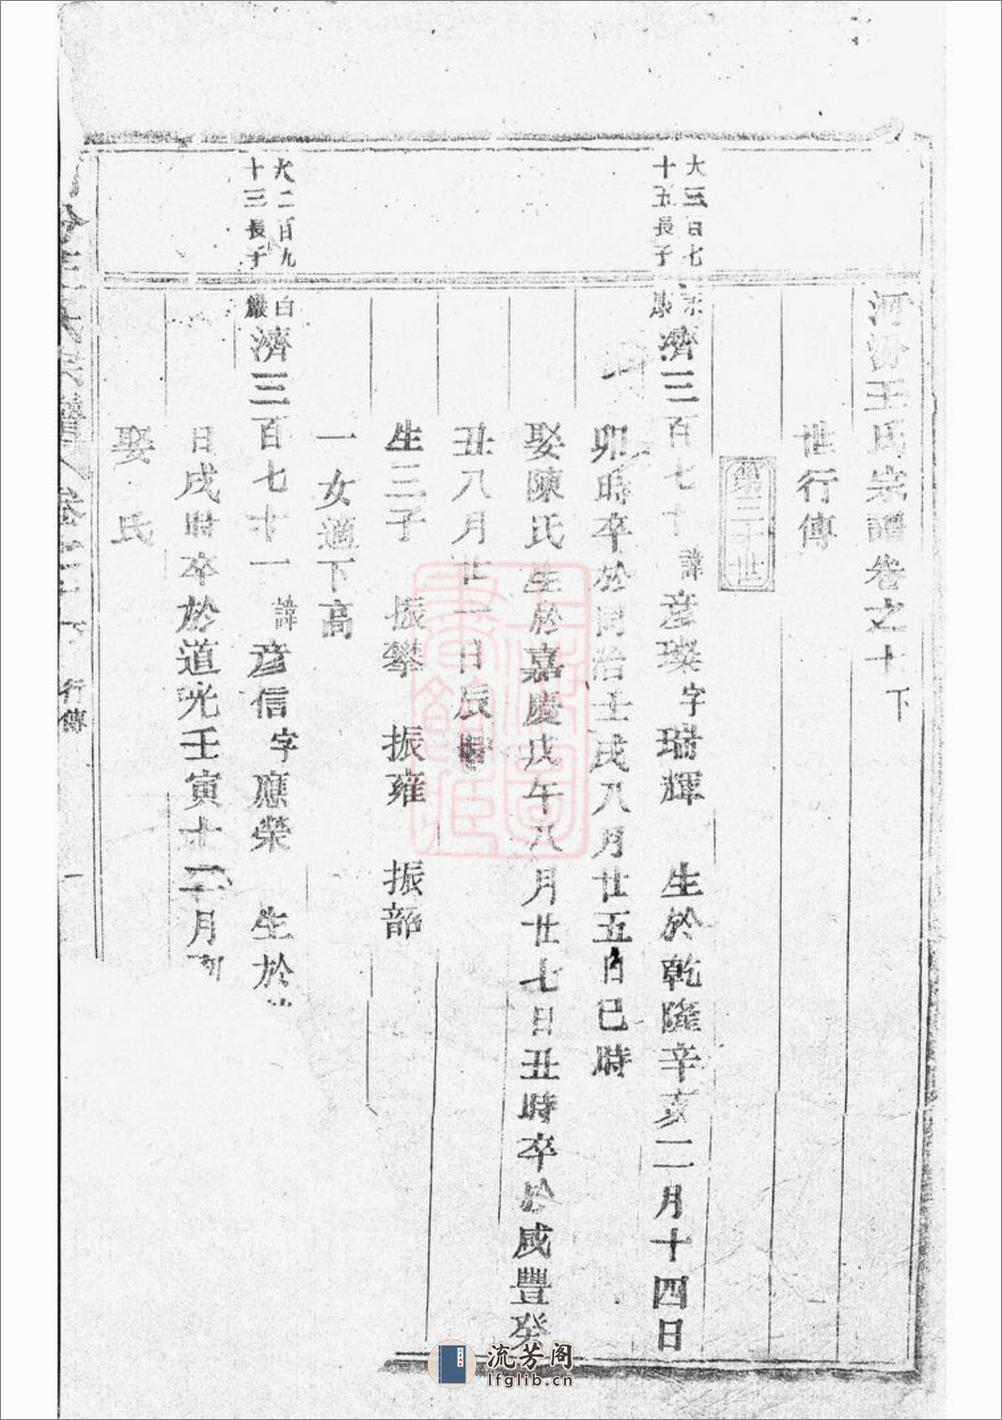 河汾王氏宗譜卷之十下
世行傳
第三十世
大三百七
十五長子
濟三百七十 諱彦璨字瑞輝 生於乾隆辛亥二月十四日
卯時卒於同治壬戌八月廿五日巳時
娶陳氏生於嘉慶戊午八月廿七日丑時卒於咸豐癸
丑八月廿一日辰時
生三子 振攀 振雍 振部
一女適下高
大二百九
十三長子
白巖
濟三百七十一 諱彦信字應榮 生於
日戌時卒於道光壬寅十一月
娶 氏
王氏宗譜 行傳 一
上海圖書館藏
流芳阁
lfglib.cn